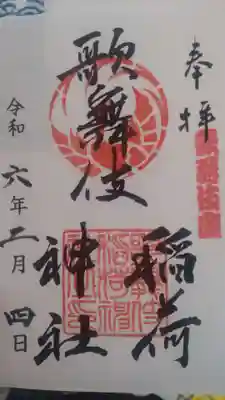 奉拝
歌舞伎
稲荷
神社
令和六年二月四日